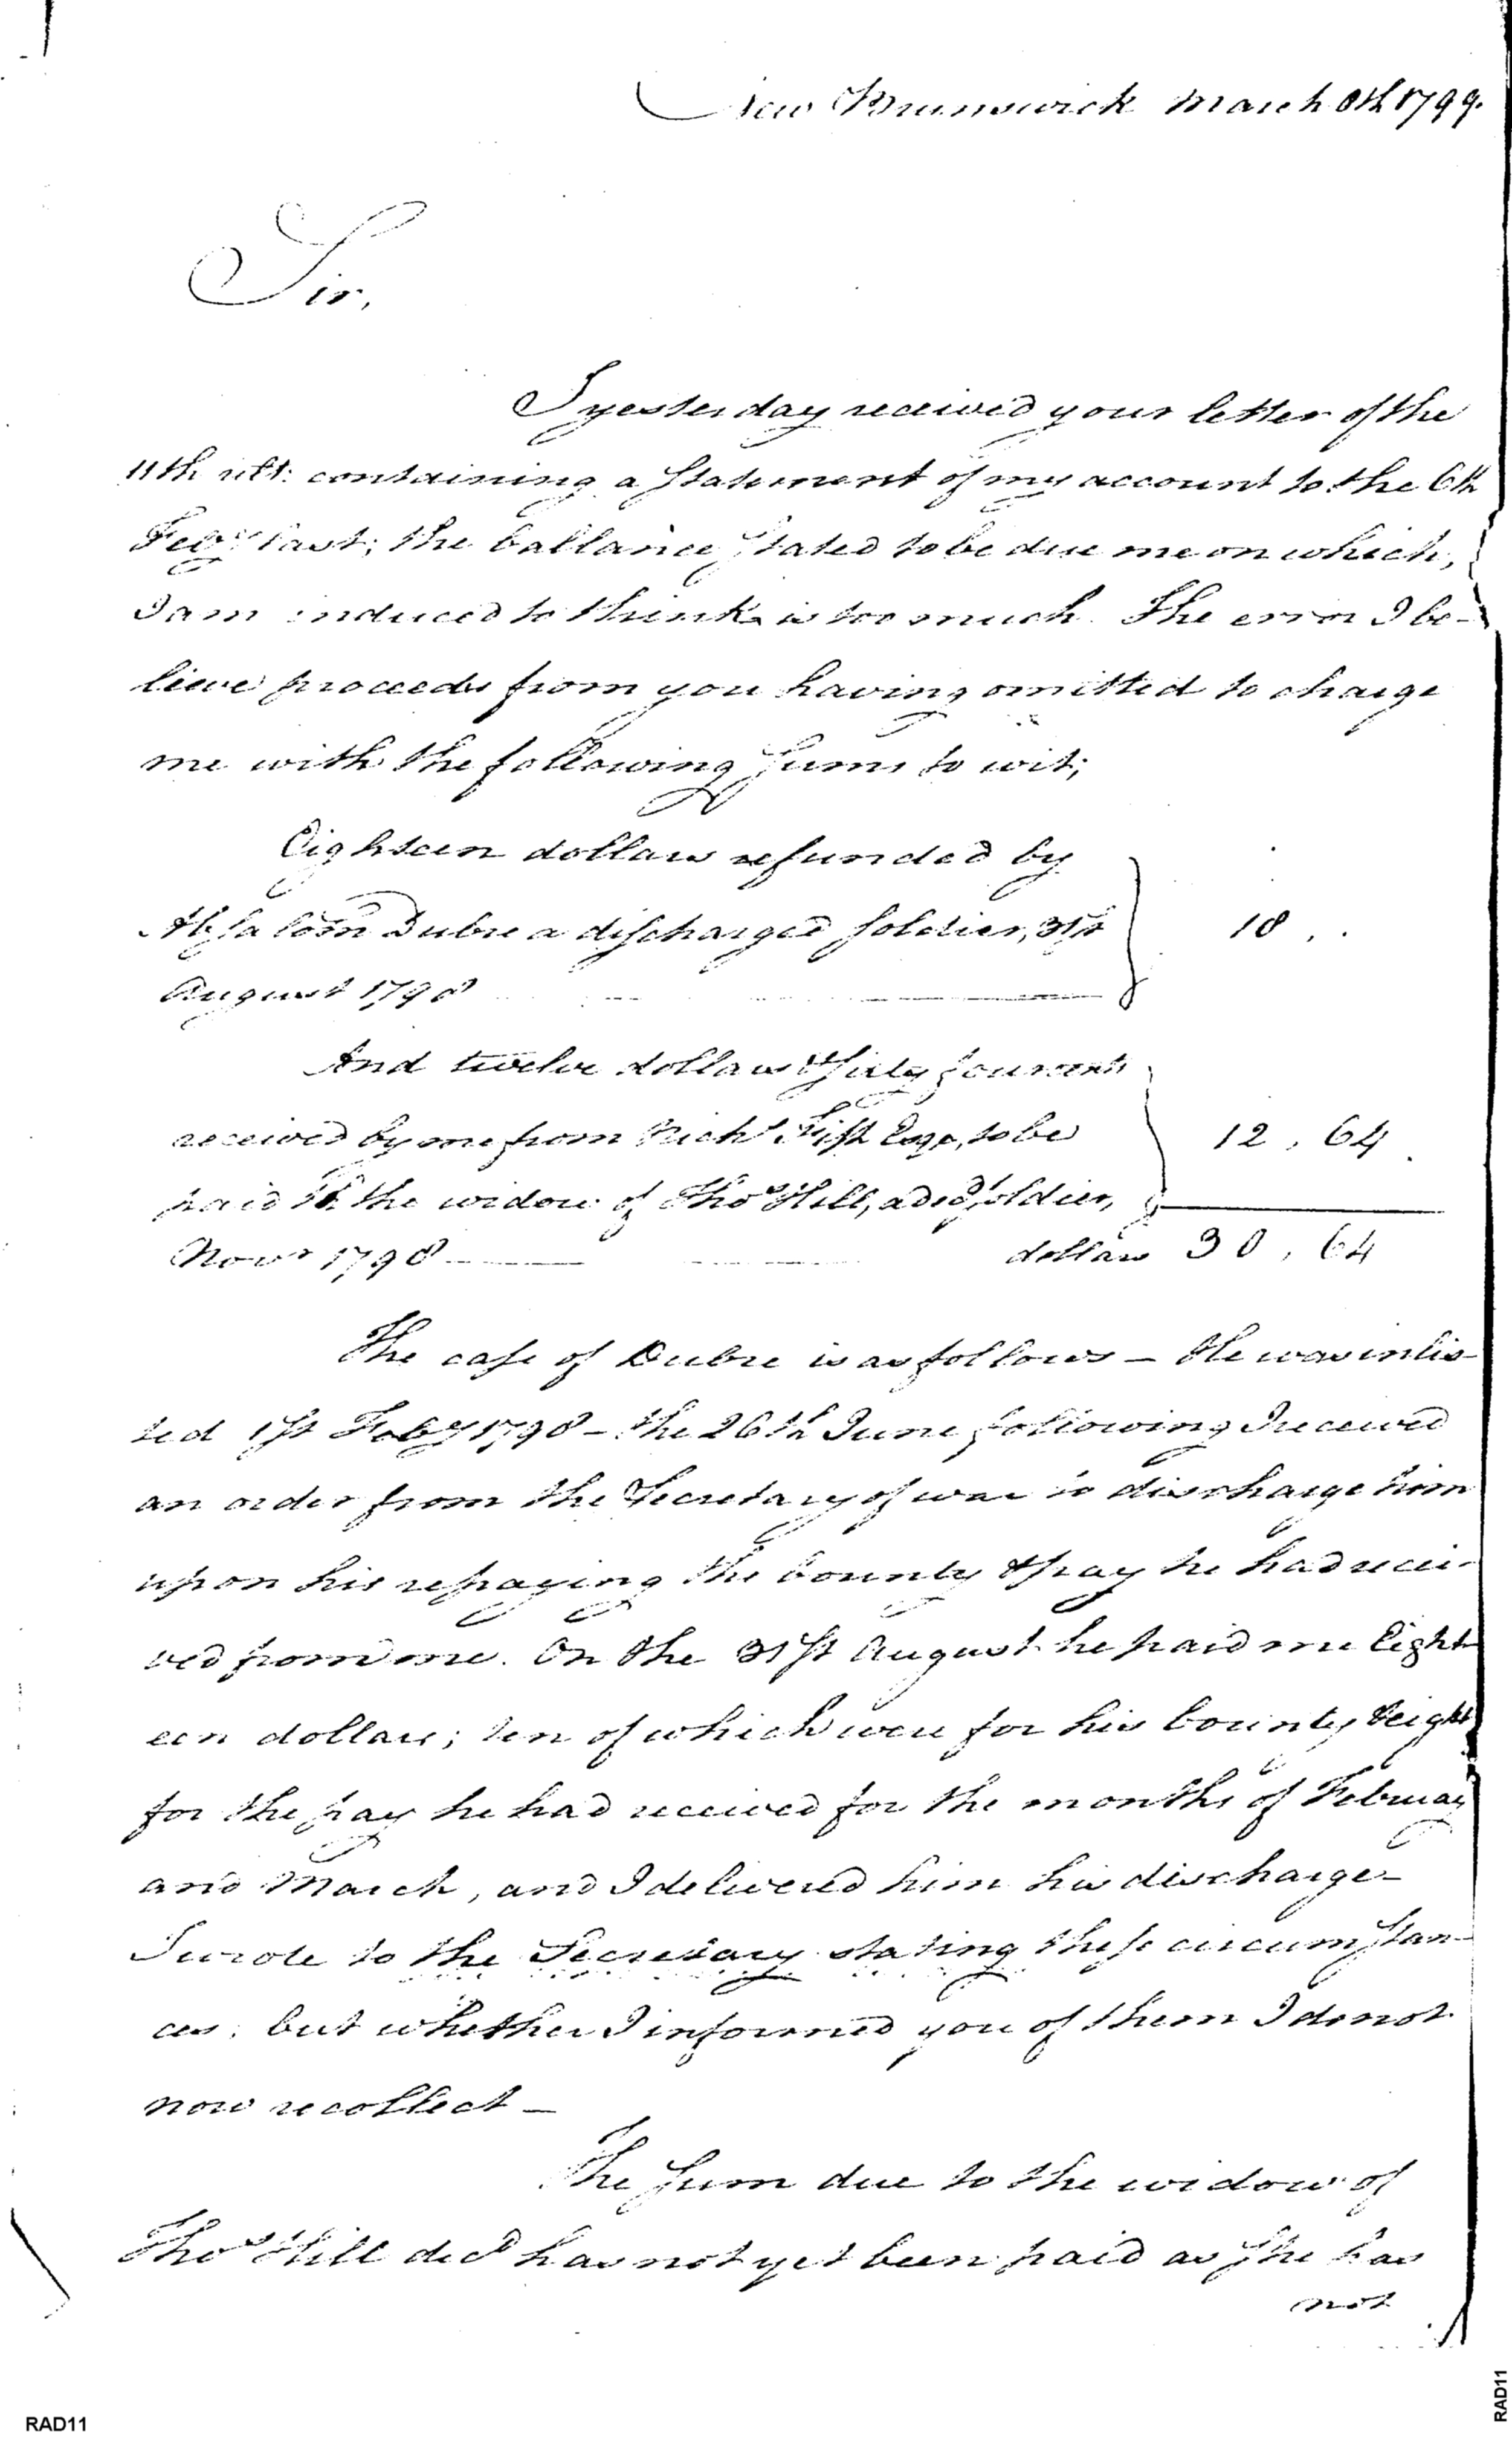 New Brunswick March 8th 1799.
Sir,
I yesterday received your letter of the
11th ult: containing a statement of my account to the 6th
Feby last; the ballance stated to be due me on which,
I am induced to think is too much. The error I be-
lieve proceeds from you having omitted to charge
me with the following sums to wit;
Eighteen dollars refunded by
Absalom Dubre a discharged soldier, 31st
18 . .
August 1798
And twelve dollars & sixty four cents
received by me from Richd Esqr, to be
12 . 64
paid to the widow of Thos Hill, a decd soldier,
Novr 1798
dollars 30 . 64
The case of Dubre is as follows – He was inlis-
ted 1st Feby 1798 – the 26th June following I received
an order from the Secretary of war to discharge him
upon his repaying the bounty & pay he had recei-
ved from me. On the 31st August he paid me Eight-
een dollars; ten of which were for his bounty & eight
for the pay he had received for the months of February
and March, and I delivered him his discharge –
I wrote to the Secretary stating these circumstan-
ces; but whether I informed you of them I do not
now recollect –
The sum due to the widow of
Thos Hill decd has not yet been paid as she has
not
RAD11
RAD11